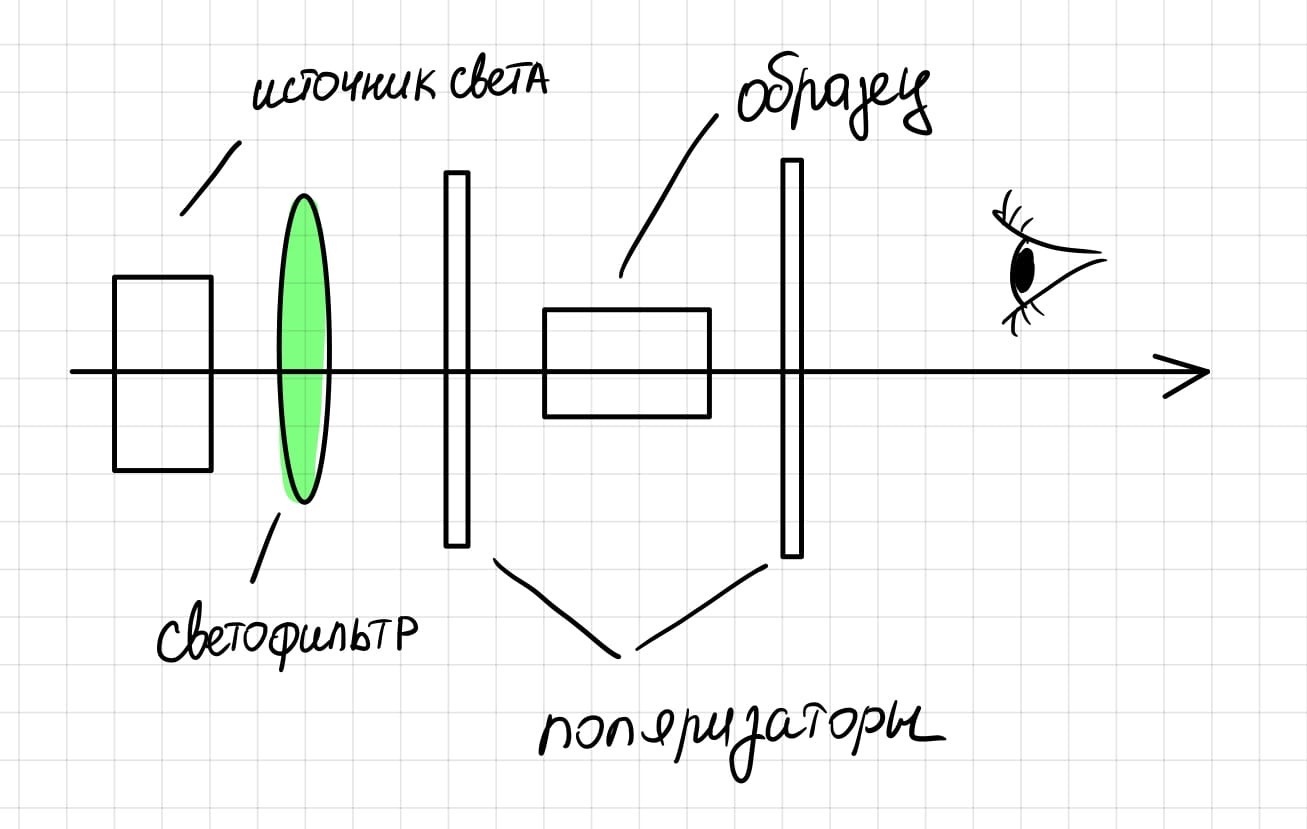 источник света
образец
светофильтр
поляризаторы